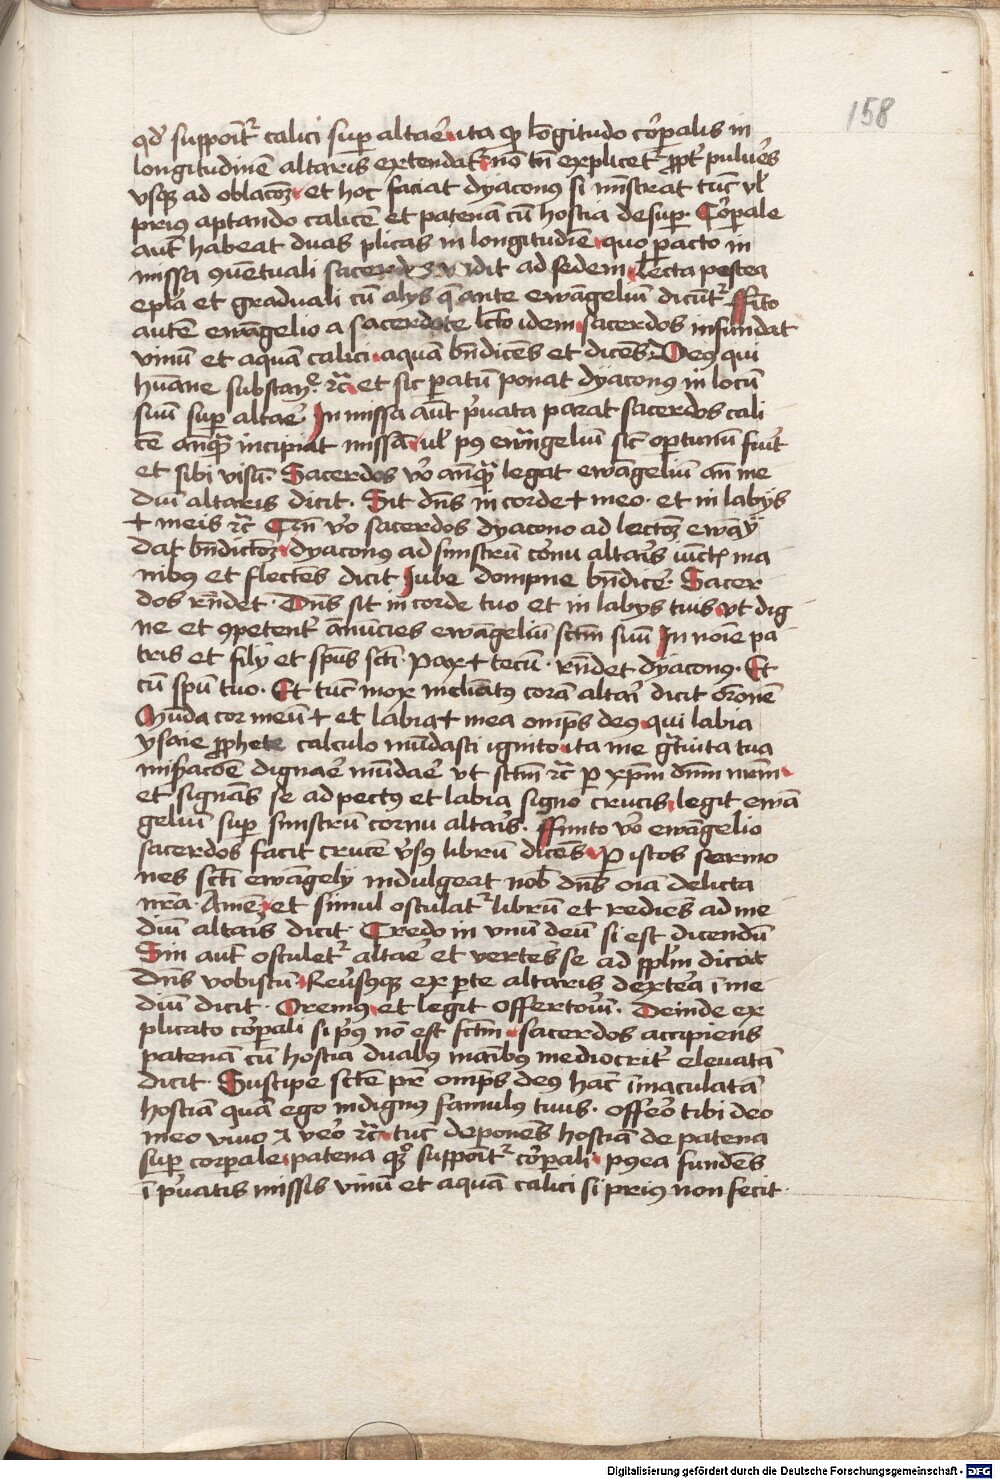 158
qd' suppoit᷑ calici sup altar̄e ita ꝙ lōgitudo cor̄palis in
longitudinē altaris extendat᷑ nō tn̄ explicet᷑ ꝓpt' pulue᷑s
vsqꝫ ad oblacōꝫ et hoc faciat dyaconꝰ si mīstrat tūc vl'
prius aptando calicē et patenā cū hostia desup. Cor̄pale
aut̄ habeat duas plicas in longitudīe quo pacto in
missa ꝯuentuali ad sedem Lecta postea
epl̄a et graduali cū alijs q̄ ante ewāgeliū dicūt᷑ ffito
autē ewāgelio a sacerdote lc̄to idem sacerdos infundat
vinū et aquā calici aquā bn̄dicēs et dicēs Deꝰ qui
hūane substan. ⁊c̄ et sic patū ponat dyaconꝰ in locū
suū sup altar̄e In missa aut̄ p̄uata parat sacerdos cali
cē anq̄ꝫ incipiat missā ul' pꝰ ewāngeliū sic̄ oportunū fuit̄
et sibi visū. Sacerdos vo anq̄ꝫ legat ewāgeliū an̄ me
diū altaris dicit. Sit dn̄s in corde ✝ meo. et in labijs
✝ meis ⁊c̄ vo sacerdos dyacono ad lectoꝫ ewāg
dat bn̄dictoꝫ dyaconꝰ ad sinistrū cor̄nu altar̄s iūct' ma
nibus et flectēs dicit Iube dompne bn̄dicē. Sacer
dos rn̄det. Dn̄s sit in corde tuo et in labijs tuis vt dig
ne et ꝯpetent᷑ ānūcies ewāgeliū sct̄m suū In noīe pa
tris et filij et sp̄us sct̄i. Pax ✝ tecū. rn̄det dyaconꝰ. Et
cū sp̄u tuo. Et tūc mox inclinatꝰ corā altari dicit or̄onē
Mūda cor meū ✝ et labia ✝ mea omp̄s deꝰ qui labia
ysaie ꝓphete calculo mūdasti ignito ita me gr̄tuita tua
misācōe dignar̄e mūdar̄e vt sct̄m ⁊c̄ p xp̄m dn̄m nr̄m
et signās se ad pectꝰ et labia signo crucis legit ewā
geliū sup sinistrū cornu altar̄s. ffinito vo ewāgelio
sacerdos facit crucē v̄sꝰ librū dicēs P istos sermo
nes sct̄i ewāgelij indulgeat nob' dn̄s oīa delicta
nr̄a. Amē et simul osculat᷑ librū et rediēs ad me
diū altar̄s dicit. Credo in vnū deū si est dicendū
Sin aut̄ osculet᷑ altar̄e et vertēs se ad pp̄l'm dicat
dn̄s vobiscū Reu̓susqꝫ ex parte altaris dextera ī me
diū dicit. Oremꝰ et legit offertoriū. Deinde ex
plicato cor̄pali si p̄ꝰ nō est fc̄tm sacerdos accipiens
patenā cū hostia duabꝰ manibꝰ mediocrit᷑ eleuatā
dicit. Suscipe sct̄e pr̄ omp̄s deꝰ hāc īmaculatā
hostiā quā ego indignꝰ famulꝰ tuus. offero tibi deo
meo viuo ⁊ vero ⁊c̄ tūc deponēs hostiā de patena
sup corpale patena suppoit᷑ cor̄pali pꝰea fundēs
ī p̄uatis missis vinū et aquā calici si prius non fecit.
Digitalisierung gefördert durch die Deutsche Forschungsgemeinschaft - DFG